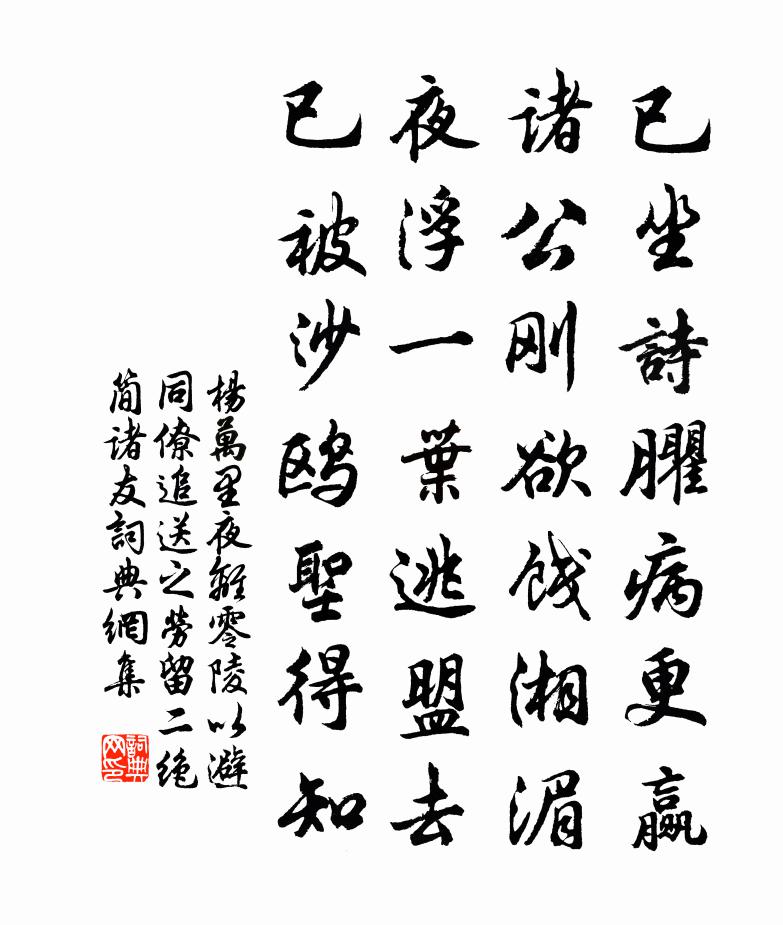 已坐詩臞病更羸
诸公刚欲饯湘湄
夜浮一葉逃盟去
已被沙鸥聖得知
楊萬里夜離零陵以避
同僚追送之勞留二绝
简诸友詞典網集
詞典网印